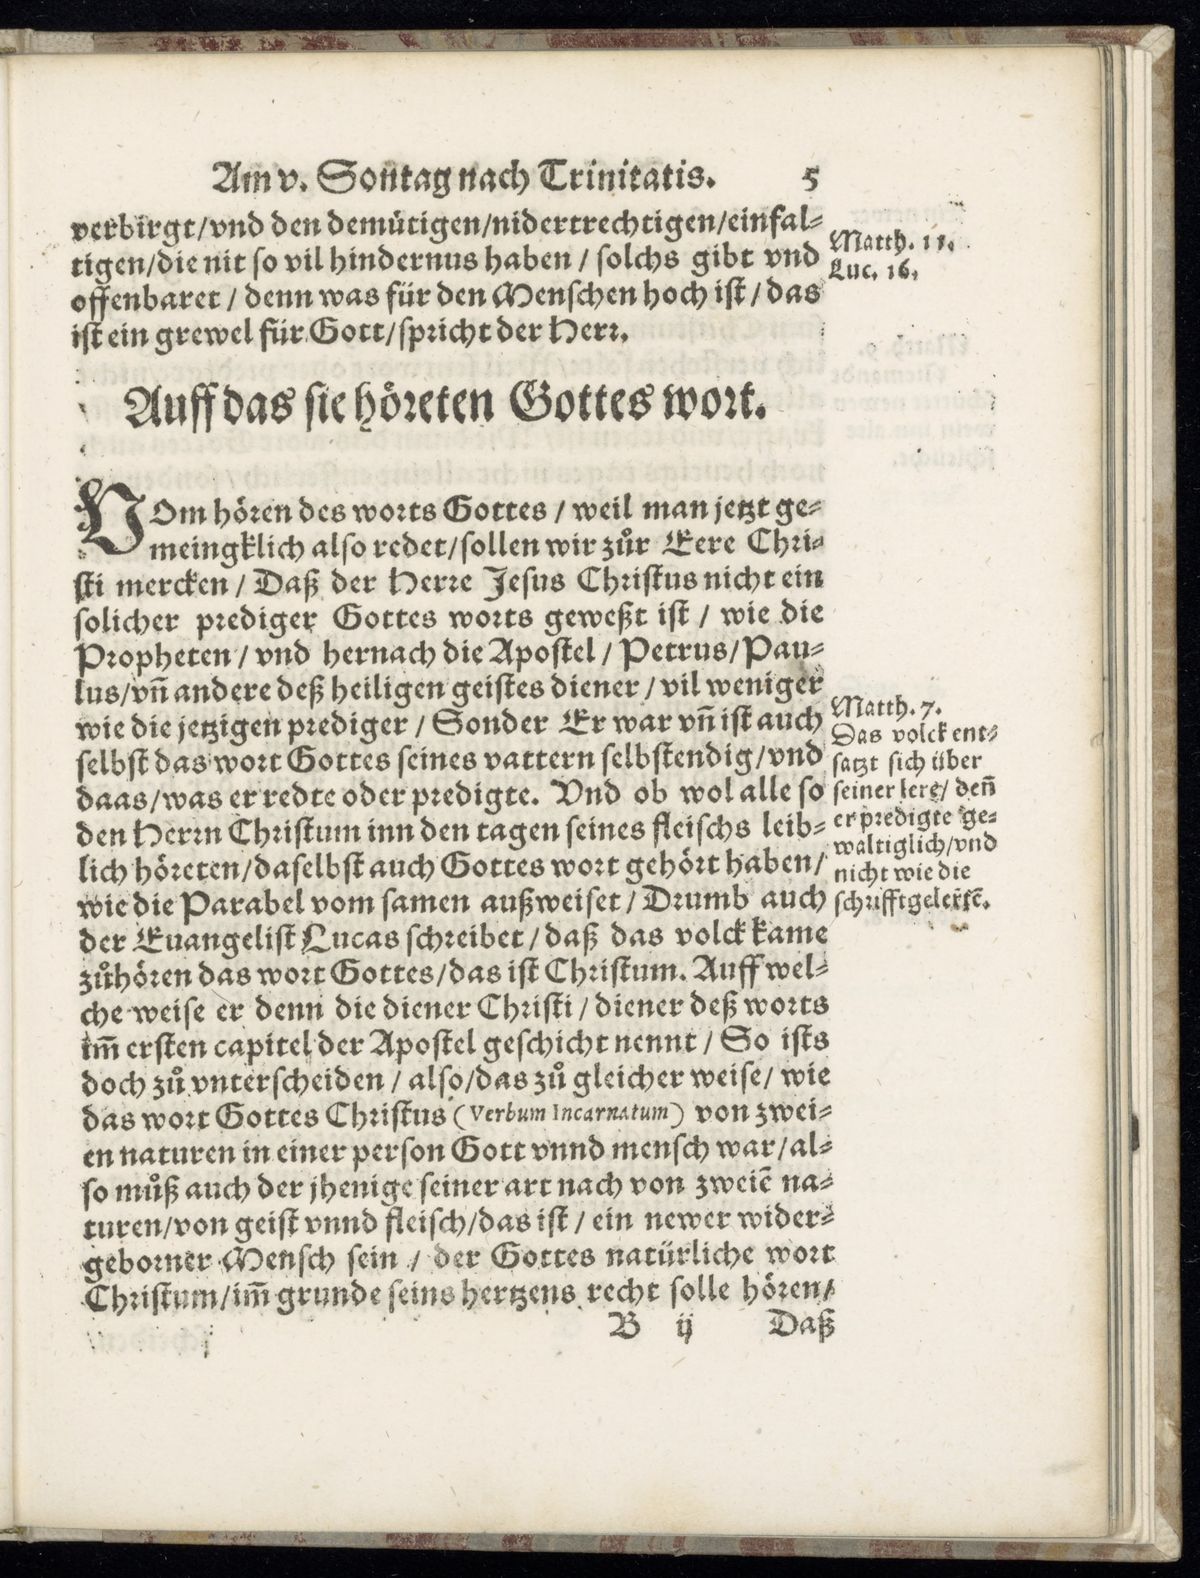 Am v. Sontag nach Trinitatis. 5
verbirgt/vnd den demütigen/nidertrechtigen/einfal⸗
tigen/die nit so vil hindernus haben / solchs gibt vnd
offenbaret / denn was für den Menschen hoch ist / das
ist ein grewel für Gott/spricht der Herr.
Matth. 11.
Luc. 16.
Auff das sie höreten Gottes wort.
VOm hören des worts Gottes / weil man jetzt ge⸗
meingklich also redet/sollen wir zůr Eere Chri⸗
sti mercken / Daß der Herre Jesus Christus nicht ein
solicher prediger Gottes worts geweßt ist / wie die
Propheten / vnd hernach die Apostel / Petrus/Pau⸗
lus/vñ andere deß heiligen geistes diener / vil weniger
wie die jetzigen prediger / Sonder Er war vñ ist auch
selbst das wort Gottes seines vattern selbstendig/vnd
daas/was er redte oder predigte. Vnd ob wol alle so
den Herrn Christum inn den tagen seines fleischs leib⸗
lich höreten/daselbst auch Gottes wort gehört haben/
wie die Parabel vom samen außweiset / Drumb auch
der Euangelist Lucas schreibet / daß das volck kame
zůhören das wort Gottes/das ist Christum. Auff wel⸗
che weise er denn die diener Christi / diener deß worts
im̃ ersten capitel der Apostel geschicht nennt / So ists
doch zů vnterscheiden / also/das zů gleicher weise/ wie
das wort Gottes Christus (Verbum Incarnatum) von zwei⸗
en naturen in einer person Gott vnnd mensch war/al⸗
so můß auch der jhenige seiner art nach von zweiẽ na⸗
turen/von geist vnnd fleisch/das ist / ein newer wider⸗
geborner Mensch sein / der Gottes natürliche wort
Christum/im̃ grunde seins hertzens recht solle hören/
Matth. 7.
Das volck ent⸗
satzt sich über
seiner lere/ deñ
er predigte ge⸗
waltiglich/vnd
nicht wie die
schrifftgelertẽ.
B ij Daß